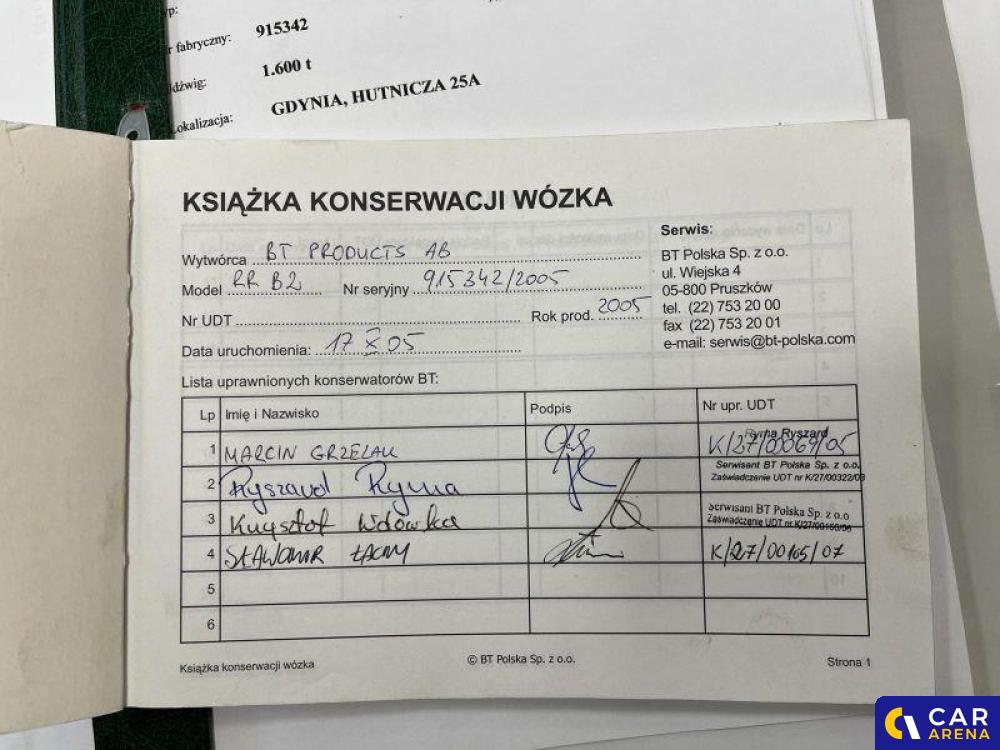 yp:
r fabryczny: 915342
dźwig: 1.600 t
okalizacja: GDYNIA, HUTNICZA 25A
KSIĄŻKA KONSERWACJI WÓZKA
Wytwórca BT PRODUCTS AB
Model RR B2 Nr seryjny 915342/2005
Nr UDT Rok prod. 2005
Data uruchomienia: 17 X 05
Serwis:
BT Polska Sp. z o.o.
ul. Wiejska 4
05-800 Pruszków
tel. (22) 753 20 00
fax (22) 753 20 01
e-mail: serwis@bt-polska.com
Lista uprawnionych konserwatorów BT:
Lp Imię i Nazwisko Podpis Nr upr. UDT
1 MARCIN GRZELAK K/27/00069/05
Ryma Ryszard
2 Ryszard Ryma Serwisant BT Polska Sp. z o.o.
Zaświadczenie UDT nr K/27/00322/0
3 Krzysztof Wdówka Serwisant BT Polska Sp. z o.o
Zaświadczenie UDT nr
4 SŁAWOMIR ŁACNY K/27/00105/07
5
6
Książka konserwacji wózka © BT Polska Sp. z o.o. Strona 1
CAR
ARENA